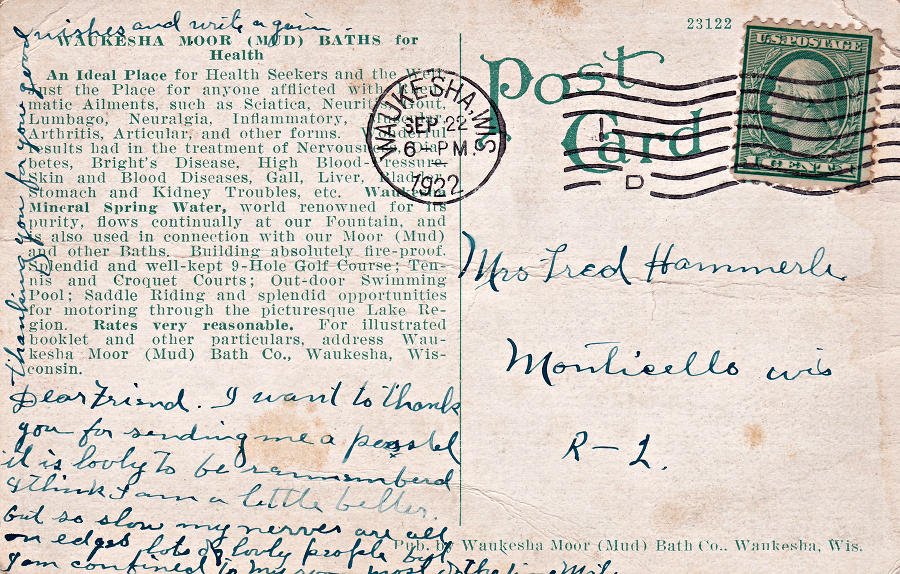 wishes and write again.
WAUKESHA MOOR (MUD) BATHS for
Health
An Ideal Place for Health Seekers and the Well.
Just the Place for anyone afflicted with
matic Ailments, such as Sciatica, Neuritis, Gout,
Lumbago, Neuralgia, Inflammatory,
Arthritis, Articular, and other forms. Wonderful
results had in the treatment of Nervous
betes, Bright's Disease, High Blood-Pressure,
Skin and Blood Diseases, Gall, Liver, Bladder,
Stomach and Kidney Troubles, etc. Waukesha
Mineral Spring Water, world renowned for its
purity, flows continually at our Fountain, and
is also used in connection with our Moor (Mud)
and other Baths. Building absolutely fire-proof.
Splendid and well-kept 9-Hole Golf Course; Ten-
nis and Croquet Courts; Out-door Swimming
Pool; Saddle Riding and splendid opportunities
for motoring through the picturesque Lake Re-
gion. Rates very reasonable. For illustrated
booklet and other particulars, address Wau-
kesha Moor (Mud) Bath Co., Waukesha, Wis-
consin.
Thanking you for your good
Dear Friend. I want to thank
you for sending me a postel
it is lovly to be ramemberd
I think I am a little better.
but so slow my nerves are all
on edges lots of lovly people but
I am confined to my room most of the time
23122
Post
Card
WAUKESHA, WIS.
SEP 22
6 - PM
1922
1
D
U.S. POSTAGE
1 CENT 1
Mrs Fred Hammerle
Monticello wis
R-1.
Pub. by Waukesha Moor (Mud) Bath Co., Waukesha, Wis.